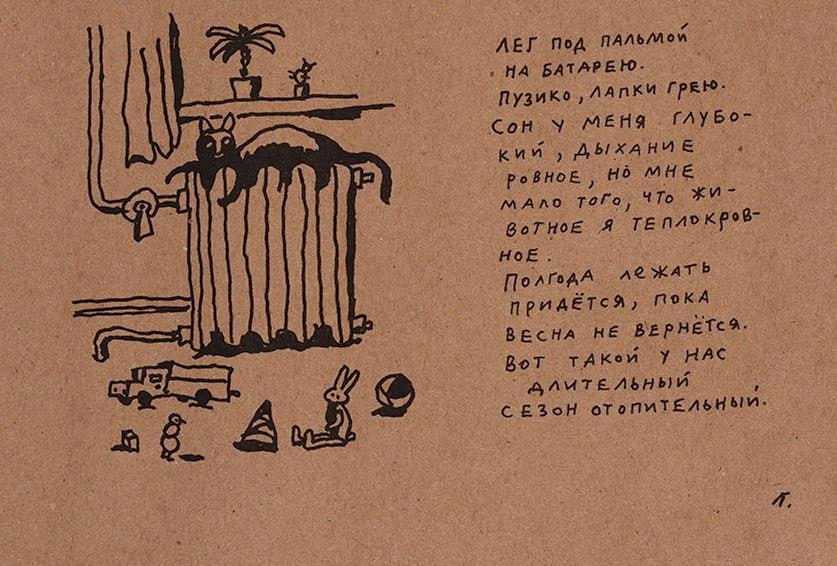 ЛЕГ ПОД ПАЛЬМОЙ
НА БАТАРЕЮ.
ПУЗИКО, ЛАПКИ ГРЕЮ.
СОН У МЕНЯ ГЛУБО-
КИЙ, ДЫХАНИЕ
РОВНОЕ, НО МНЕ
МАЛО ТОГО, ЧТО ЖИ-
ВОТНОЕ Я ТЕПЛОКРОВ-
НОЕ.
ПОЛГОДА ЛЕЖАТЬ
ПРИДЁТСЯ, ПОКА
ВЕСНА НЕ ВЕРНЁТСЯ.
ВОТ ТАКОЙ У НАС
ДЛИТЕЛЬНЫЙ
СЕЗОН ОТОПИТЕЛЬНЫЙ.